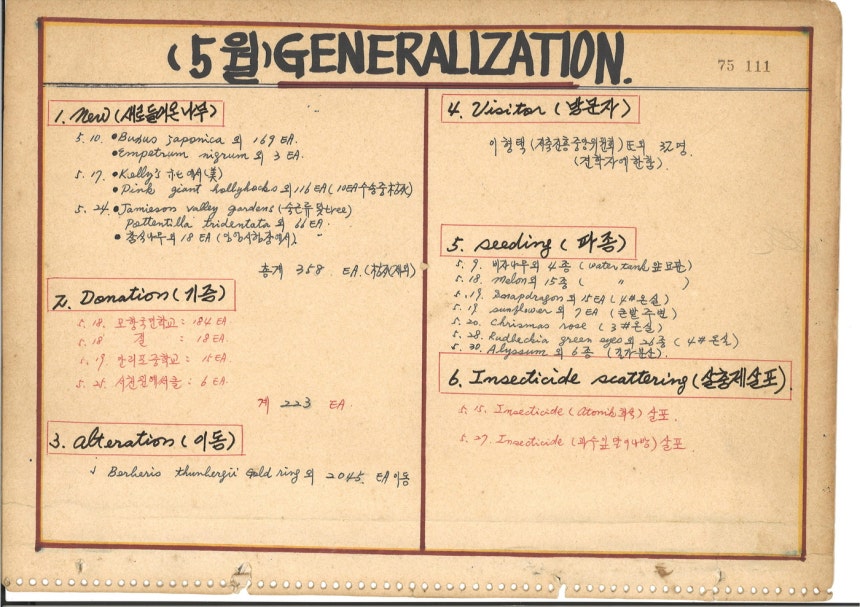 (5월) GENERALIZATION.
75 111
1. New (새로들어온나무)
5. 10. • Buxus japonica 외 169 EA.
• Empetrum nigrum 외 3 EA.
5. 17. • Kelly's 에서(美)
• Pink giant hollyhocks 외 116 EA (10EA수송중枯死)
5. 24. • Jamieson valley gardens (숙근류 및 tree)
Pottentilla tridentata 외 66 EA.
• 나무외 18 EA
총계 358 EA. (枯死제외)
2. Donation (기증)
5. 18. 모항국민학교 : 184 EA
5. 18 〃 : 18 EA
5. 19. 만리포중학교 : 15 EA
5. 25. : 6 EA
계 223 EA
3. alteration (이동)
Berberis thunbergii Gold ring 외 2045. EA 이동
4. Visitor (방문자)
이형택 외 32명.
(견학자에한함).
5. seeding (파종)
5. 9. 비자나무외 4종 (water tank 앞 묘판)
5. 18. Melon외 15종 ( 〃 )
5. 19. Snapdragon 외 15 EA (4#온실)
5. 19 sunflower 외 7 EA (주변)
5. 20. Chrismas rose (3#온실)
5. 28. Rudbechia green eyes 외 26종 (4#온실)
5. 30. Alyssum 외 6종
6. Insecticide scattering (살충제살포).
5. 15. Insecticide (Atomik) 살포.
5. 27. Insecticide 살포